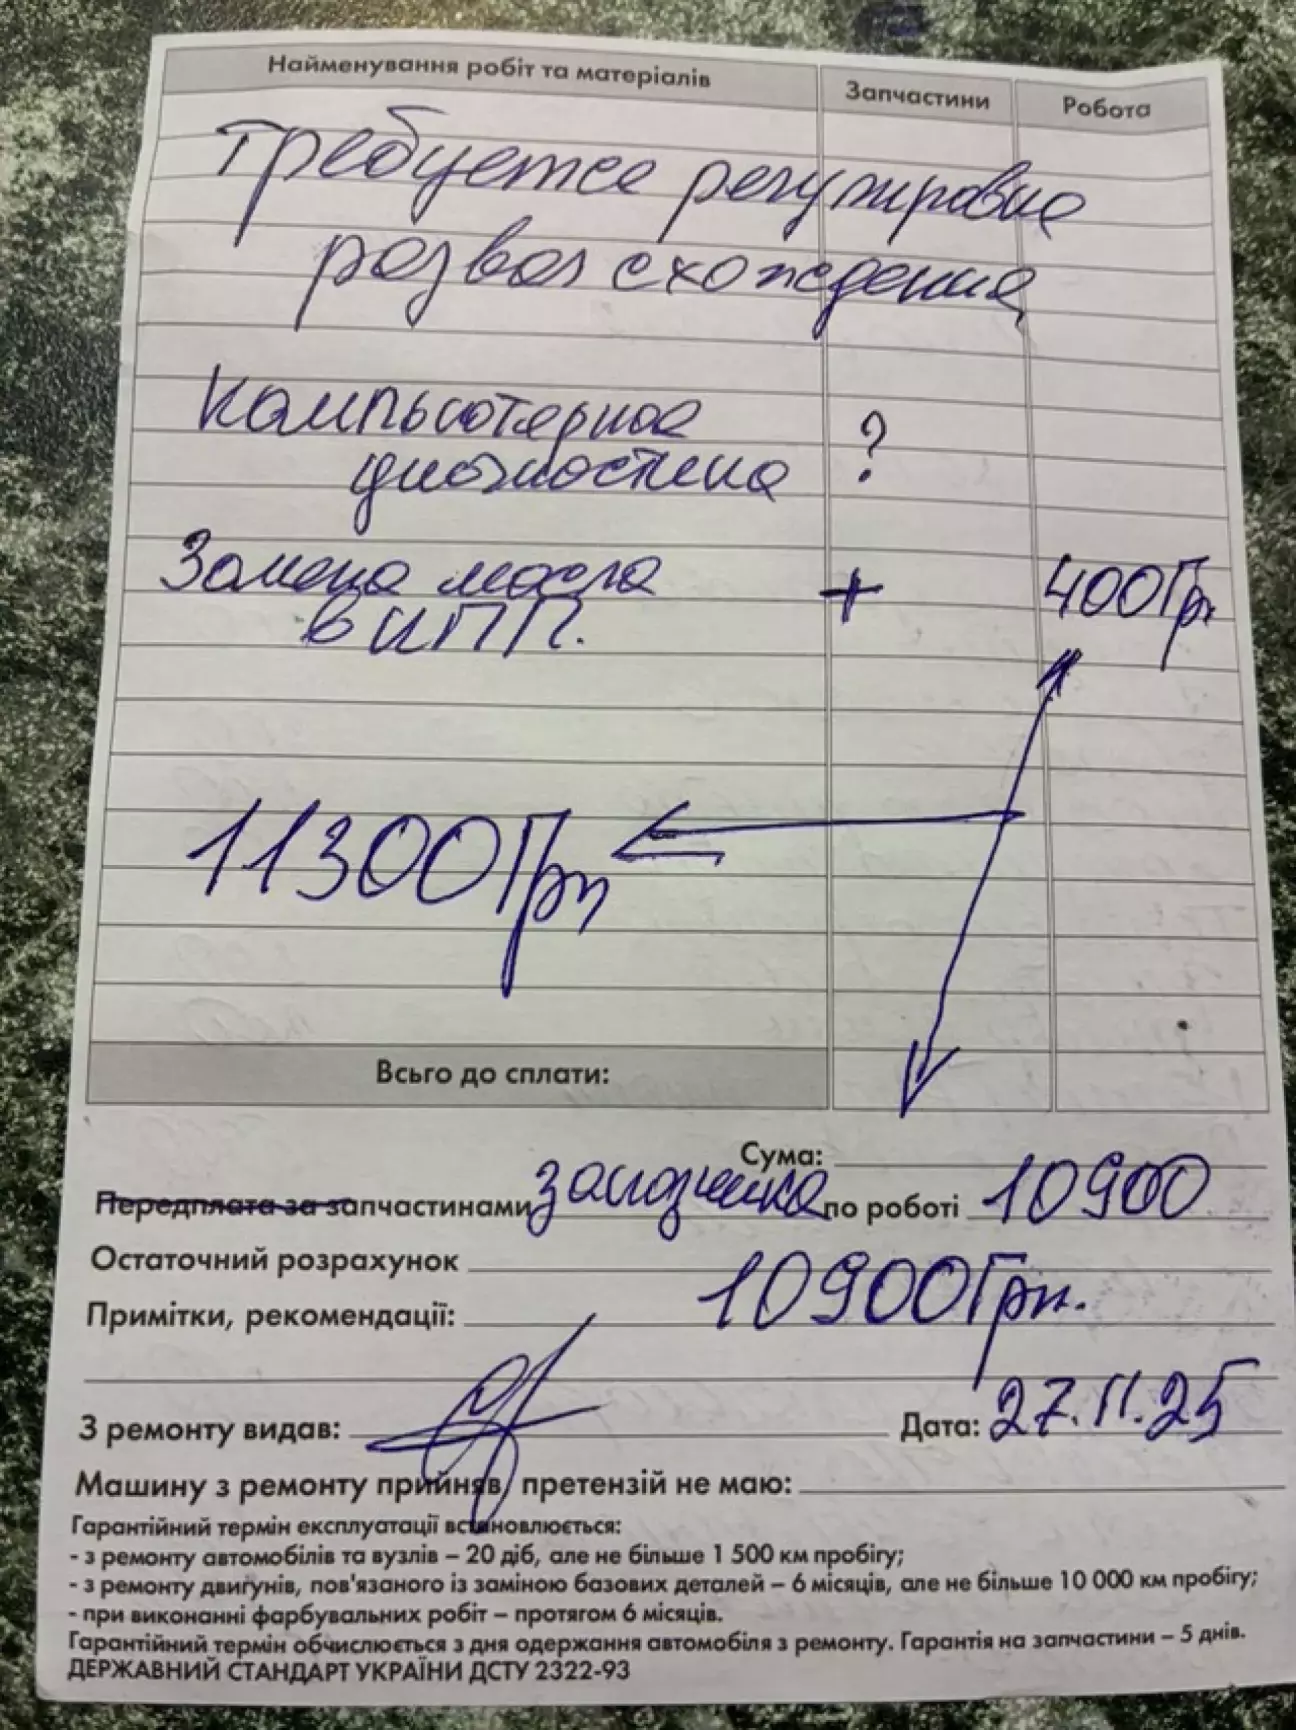 Найменування робіт та матеріалів Запчастини Робота
Требуется регулировка
розвал схождения
Компьютерная ?
диагностика
Замена масла + 400 Грн
в КПП.
11300 Грн
Всьго до сплати:
Сума:
Передплата за запчастинами задолженность по роботі 10900
Остаточний розрахунок
Примітки, рекомендації: 10900 Грн.
З ремонту видав: Дата: 27.11.25
Машину з ремонту прийняв, претензій не маю:
Гарантійний термін експлуатації встановлюється:
- з ремонту автомобілів та вузлів – 20 діб, але не більше 1 500 км пробігу;
- з ремонту двигунів, пов'язаного із заміною базових деталей – 6 місяців, але не більше 10 000 км пробігу;
- при виконанні фарбувальних робіт – протягом 6 місяців.
Гарантійний термін обчислюється з дня одержання автомобіля з ремонту. Гарантія на запчастини – 5 днів.
ДЕРЖАВНИЙ СТАНДАРТ УКРАЇНИ ДСТУ 2322-93